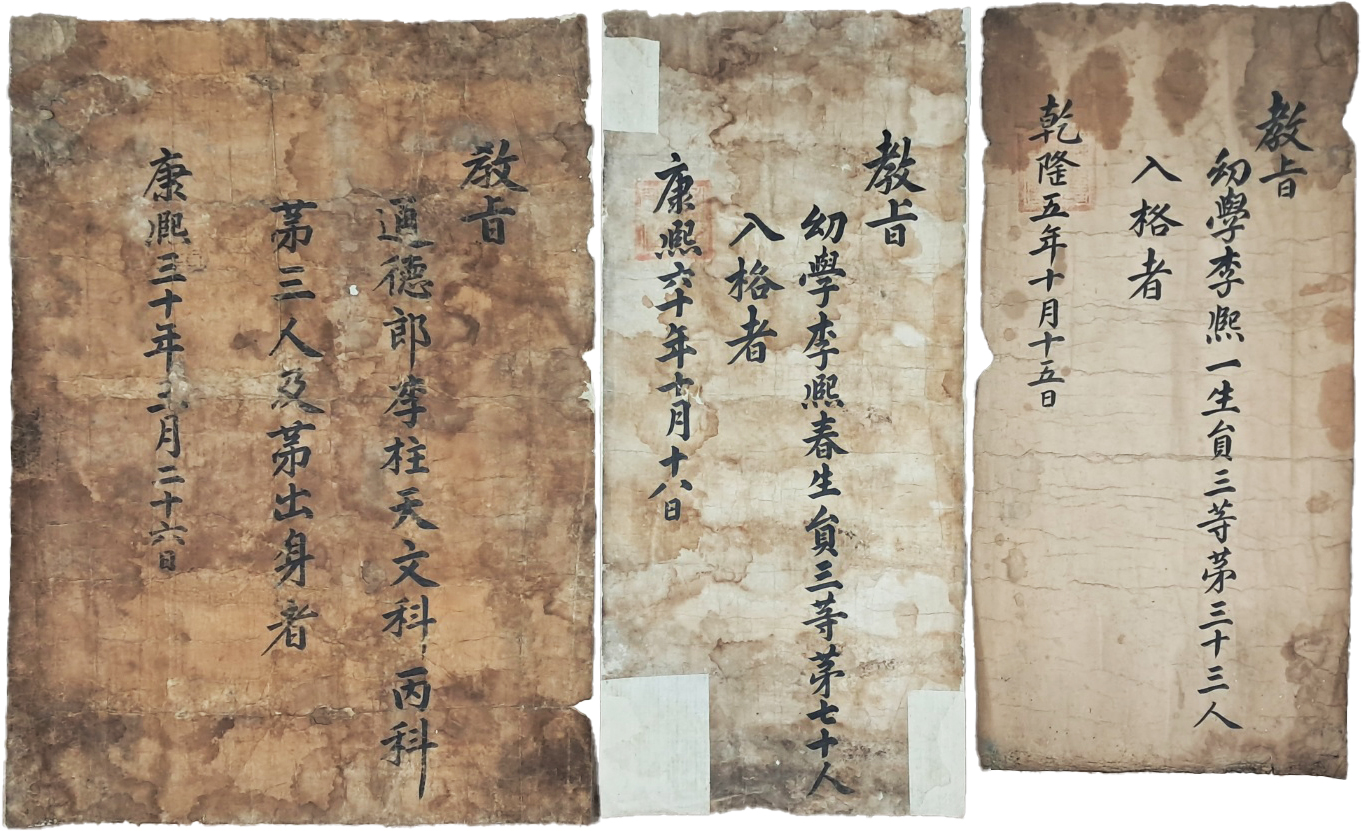 教旨
通德郎李柱天文科丙科
第三人及第出身者
康熙三十年三月二十六日
教旨
幼學李熙春生員三等第七十人
入格者
康熙六十年十月十八日
教旨
幼學李熙一生員三等第三十三人
入格者
乾隆五年十月十五日